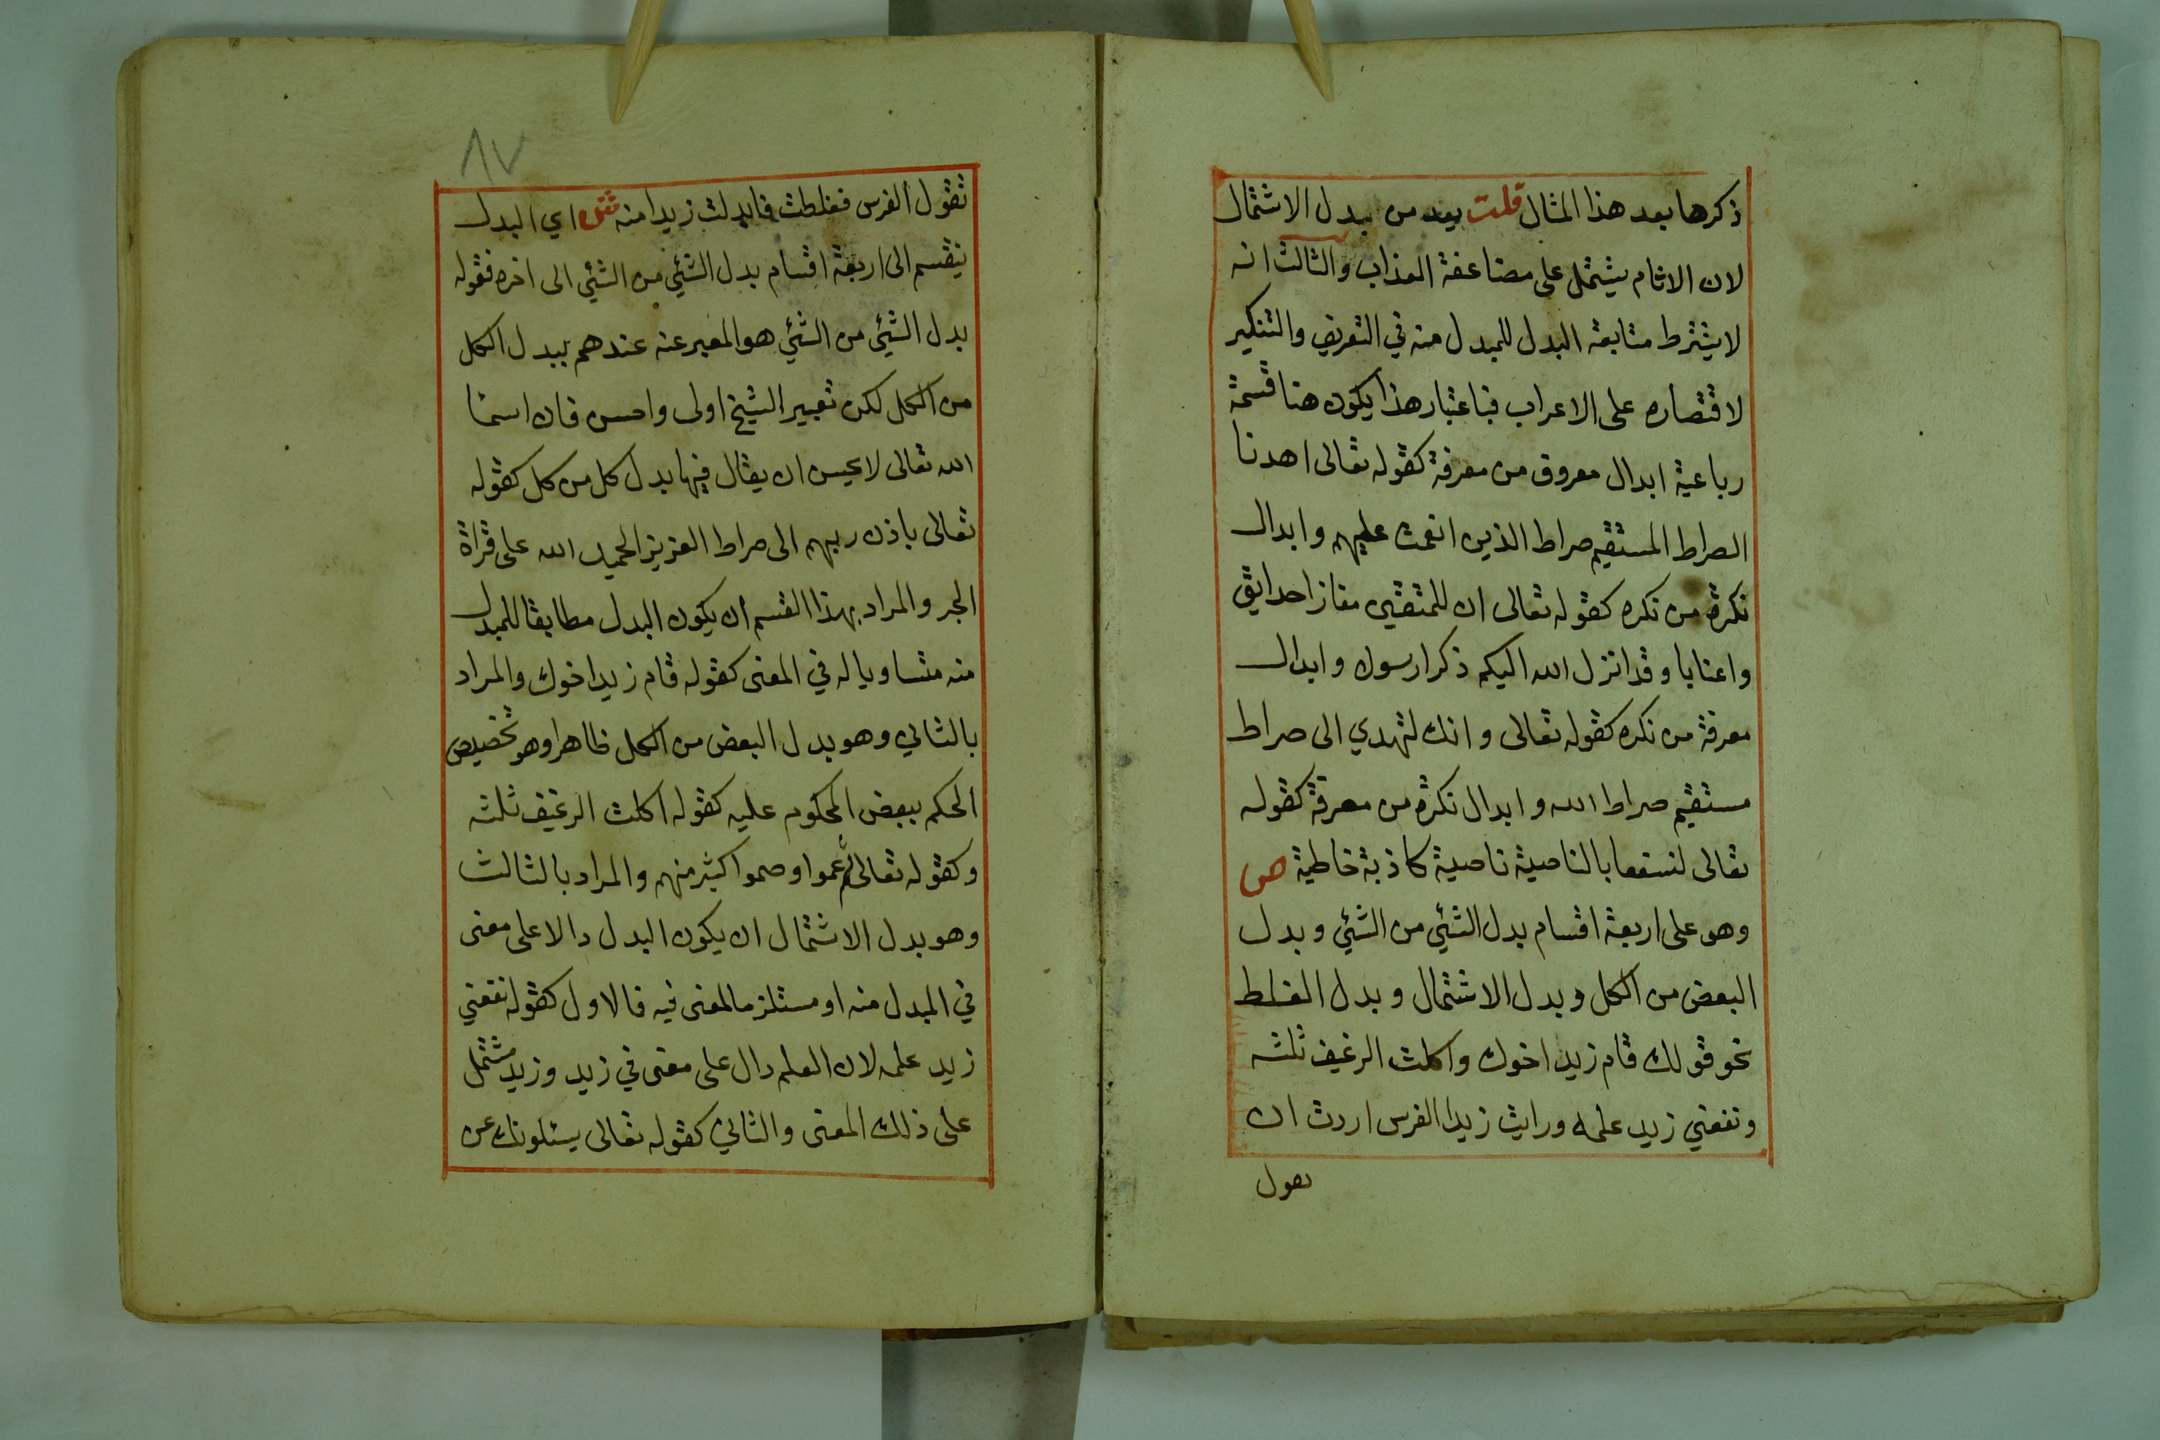 ذكرها بعد هذا المثال قلت يعد من بدل الاشتمال
لان الاثام يشتمل على مضاعفة العذاب والثالث انه
لا يشترط متابعة البدل للمبدل منه في التعريف والتنكير
لاقتصاره على الاعراب فباعتبار هذا يكون هنا قسمة
رباعية ابدال معروف من معرفة كقوله تعالى اهدنا
الصراط المستقيم صراط الذين انعمت عليهم وابدال
نكرة من نكره كقوله تعالى ان للمتقين مفازا حدايق
واعنابا وقد انزل الله اليكم ذكرا رسولا وابدال
معرفة من نكره كقوله تعالى وانك لتهدي الى صراط
مستقيم صراط الله وابدال نكرة من معرفة كقوله
تعالى لنسفعا بالناصية ناصية كاذبة خاطية ص
وهو على اربعة اقسام بدل الشئي من الشئي وبدل
البعض من الكل وبدل الاشتمال وبدل الغلط
نحو قولك قام زيد اخوك واكلت الرغيف ثلثه
ونفعني زيد علمه ورايت زيدا الفرس اردت ان
تقول
٨٧
تقول الفرس فغلطت فابدلت زيدا منه ش اي البدل
ينقسم الى اربعة اقسام بدل الشئي من الشئي الى اخره فقوله
بدل الشئي من الشئي هو المعبر عنه عندهم ببدل الكل
من الكل لكن تعبير الشيخ اولى واحسن فان اسما
الله تعالى لا يحسن ان يقال فيها بدل كل من كل كقوله
تعالى باذن ربهم الى صراط العزيز الحميد الله على قراة
الجر والمراد بهذا القسم ان يكون البدل مطابقا للمبدل
منه متساويا له في المعنى كقوله قام زيد اخوك والمراد
بالثاني وهو بدل البعض من الكل ظاهرا وهو تخصيص
الحكم ببعض المحكوم عليه كقوله اكلت الرغيف ثلثه
وكقوله تعالى ثم عموا وصموا كثير منهم والمراد بالثالث
وهو بدل الاشتمال ان يكون البدل دالا على معنى
في المبدل منه او مستلزما لمعنى فيه فالاول كقوله نفعني
زيد علمه لان العلم دال على معنى في زيد وزيد مشتمل
على ذلك المعنى والثاني كقوله تعالى يسئلونك عن